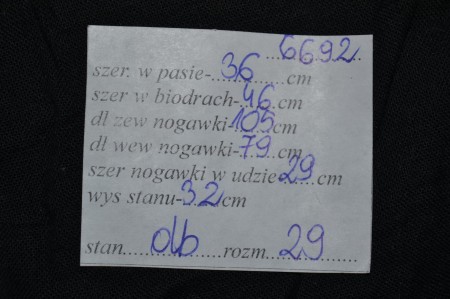 ...6692...
szer. w pasie-..36......cm
szer w biodrach-46.cm
dł zew nogawki-105cm
dł wew nogawki-79...cm
szer nogawki w udzie29....cm
wys stanu-32cm
stan......db......rozm...29............